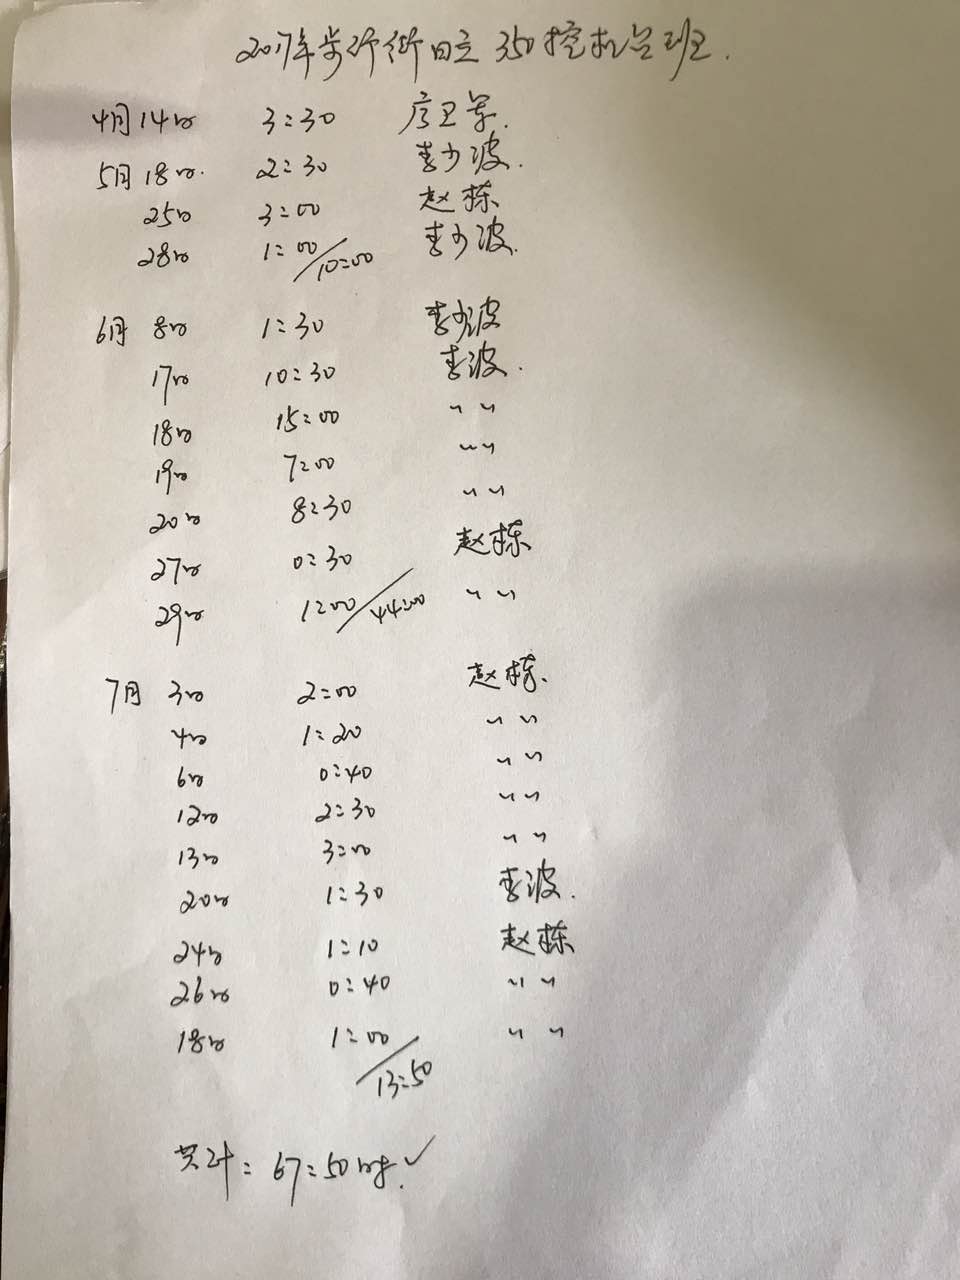 2017年步行街日立350挖机台班.
4月14日 3:30 彦卫军.
5月18日. 2:30 李少波.
25日 3:00 赵栋
28日 1:00/10:00 李少波.
6月 8日 1:30 李少波
17日 10:30 李波.
18日 15:00 〃
19日 7:00 〃
20日 8:30 〃
27日 0:30 赵栋
29日 1:00/44:00 〃
7月 3日 2:00 赵栋.
4日 1:20 〃
6日 0:40 〃
12日 2:30 〃
13日 3:00 〃
20日 1:30 李波.
24日 1:10 赵栋
26日 0:40 〃
18日 1:00 〃
/13:50
共计: 67:50时.✓